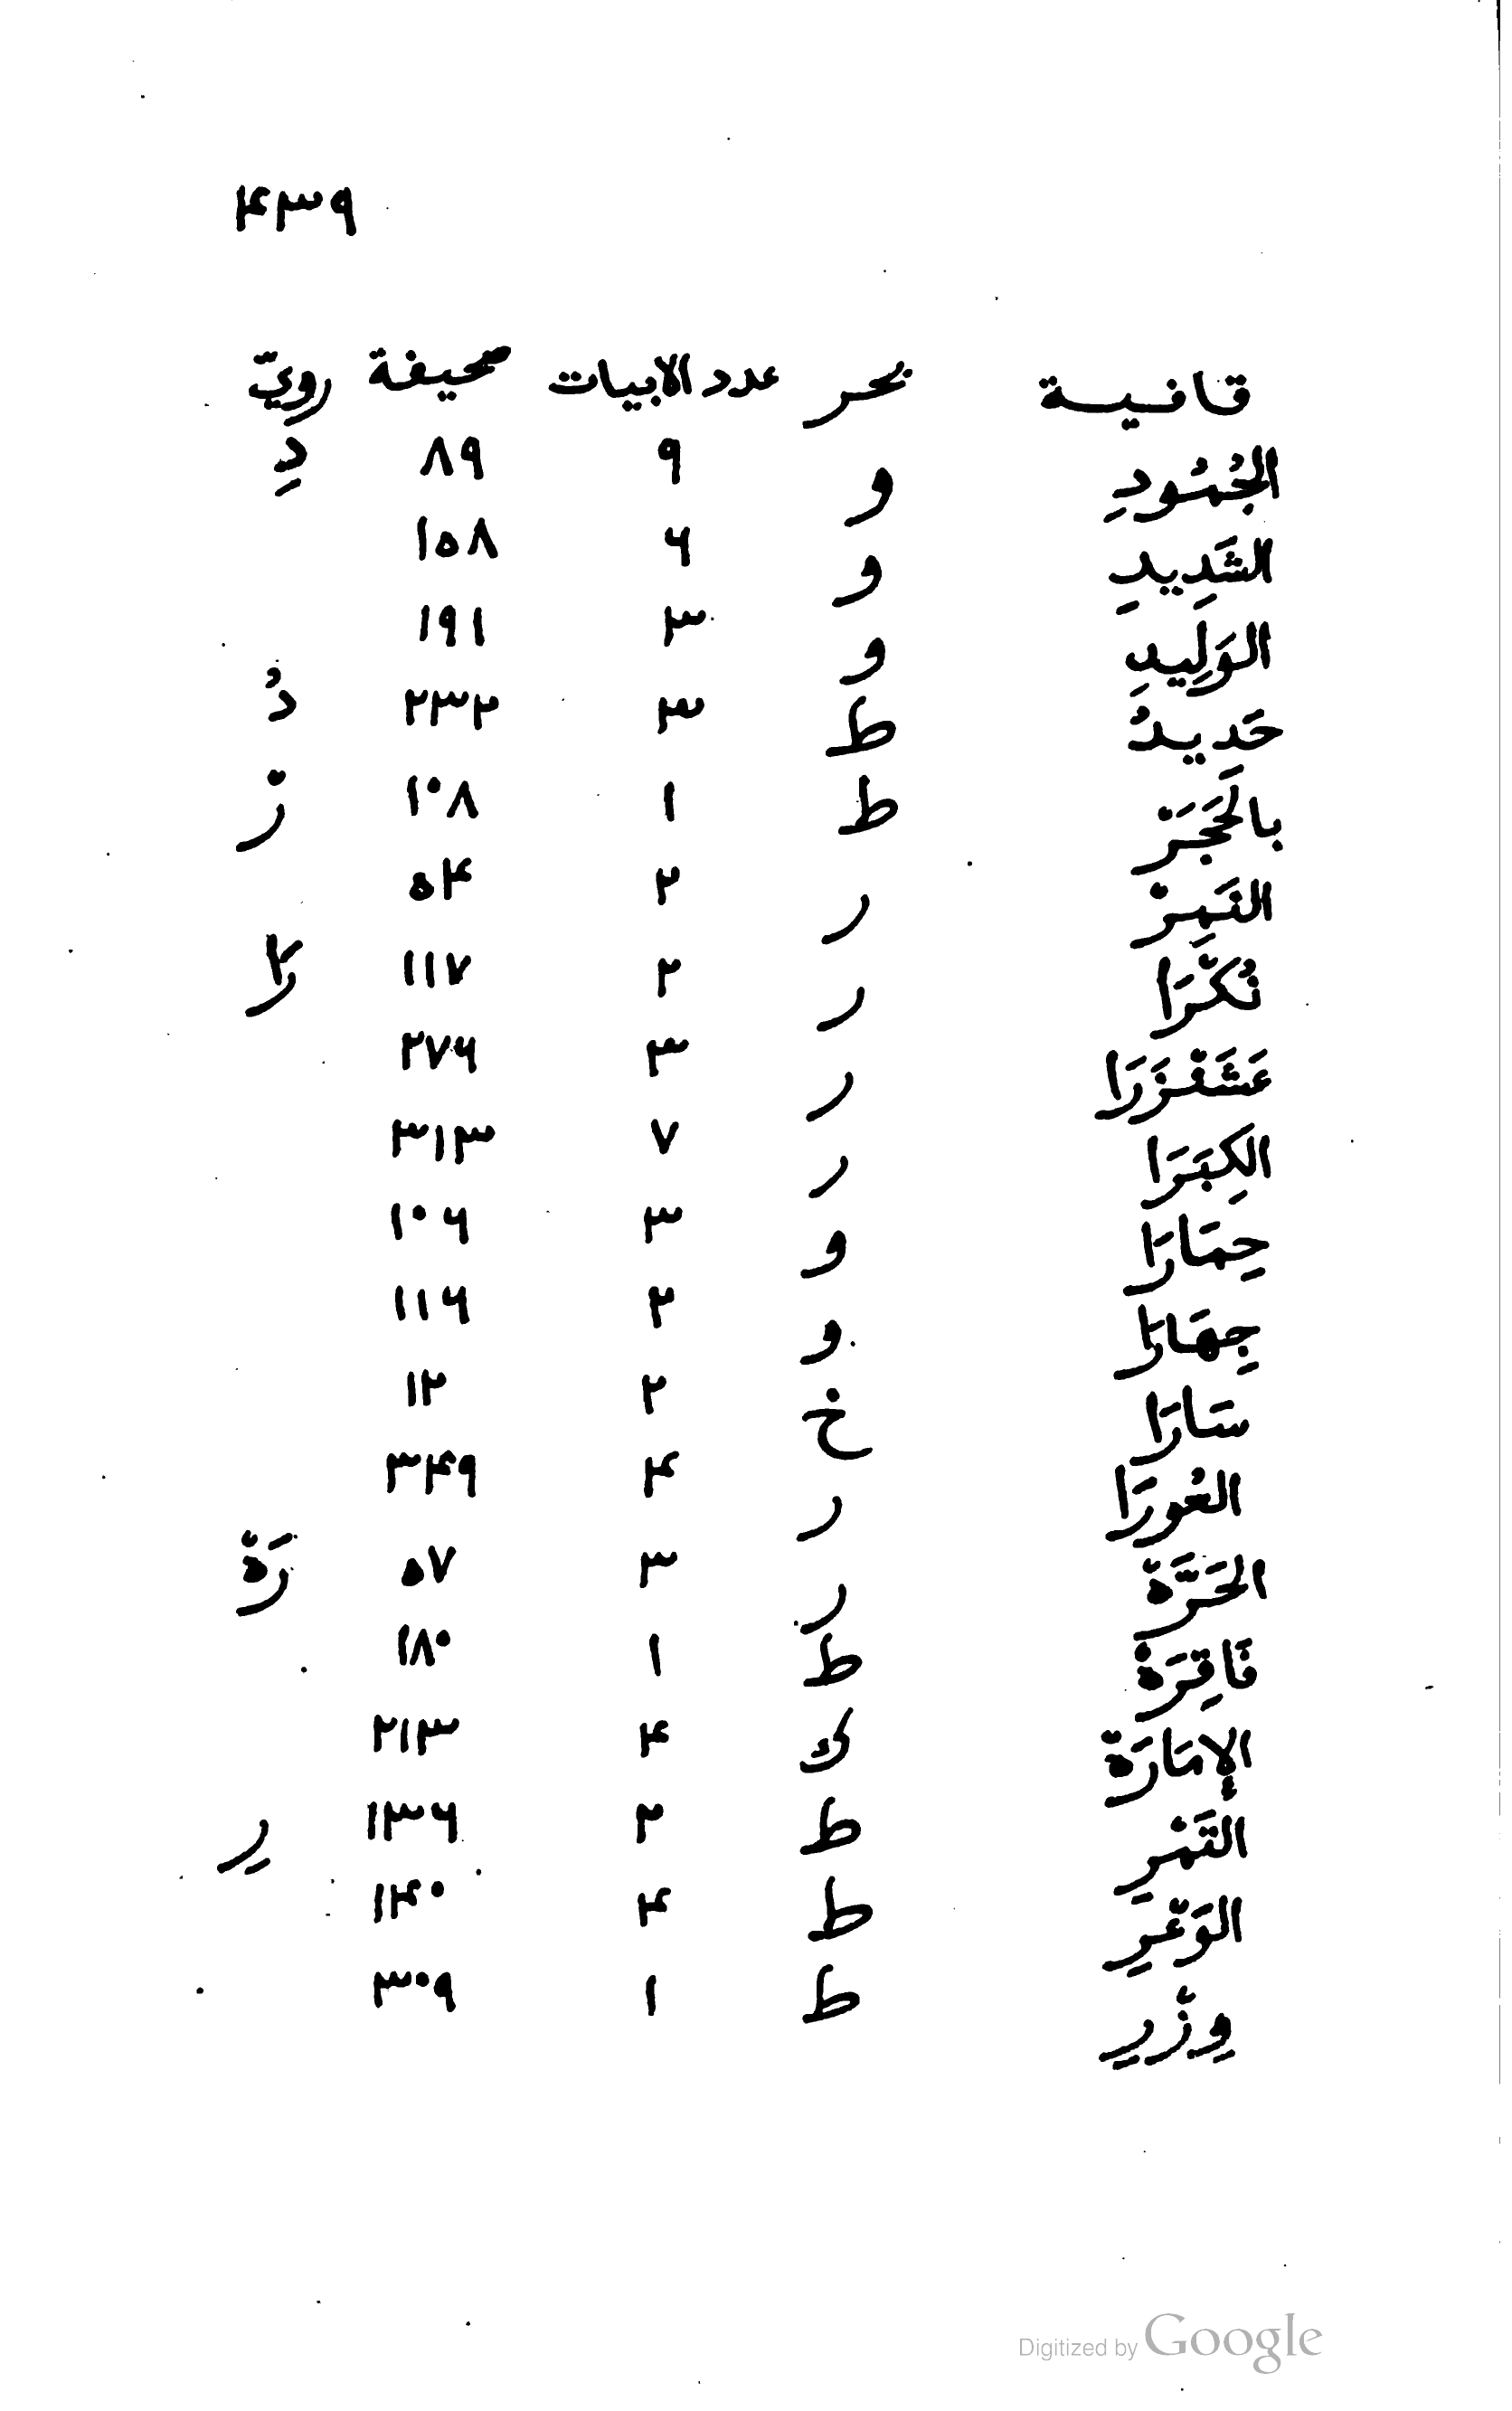 ٤٣٩
قافية بحر عدد الابيات صحيفة رويّ
الجُمُودِ و ٩ ٨٩ دِ
الشَدِيدِ و ٦ ١٥٨
الوَلِيدِ و ٣ ١٩١
حَدِيدُ ط ٣ ٢٣٢ دُ
بالحَجَرْ ط ١ ١٠٨ رْ
النَمِرْ ر ٢ ٥٤
نُكَّرَا ر ٢ ١١٧ رَا
عَشَنْزَرَا ر ٣ ٢٧٦
الكِبَرَا ر ٧ ٣١٣
حِمَارَا و ٣ ١٠٦
جِهَارَا و ٢ ١١٦
سَارَا خ ٢ ١٢
العُورَا ر ٤ ٣٤٩
الحَرَّهْ ر ٣ ٥٧ رَهْ
فَاقِرَهْ ط ١ ١٨٠
الإمَارَة ك ٤ ٢١٣
التَمْرِ ط ٢ ١٣٦ رِ
الوَعْرِ ط ٤ ١٤٠
وِزْرِ ط ١ ٣٠٩
Digitized by Google